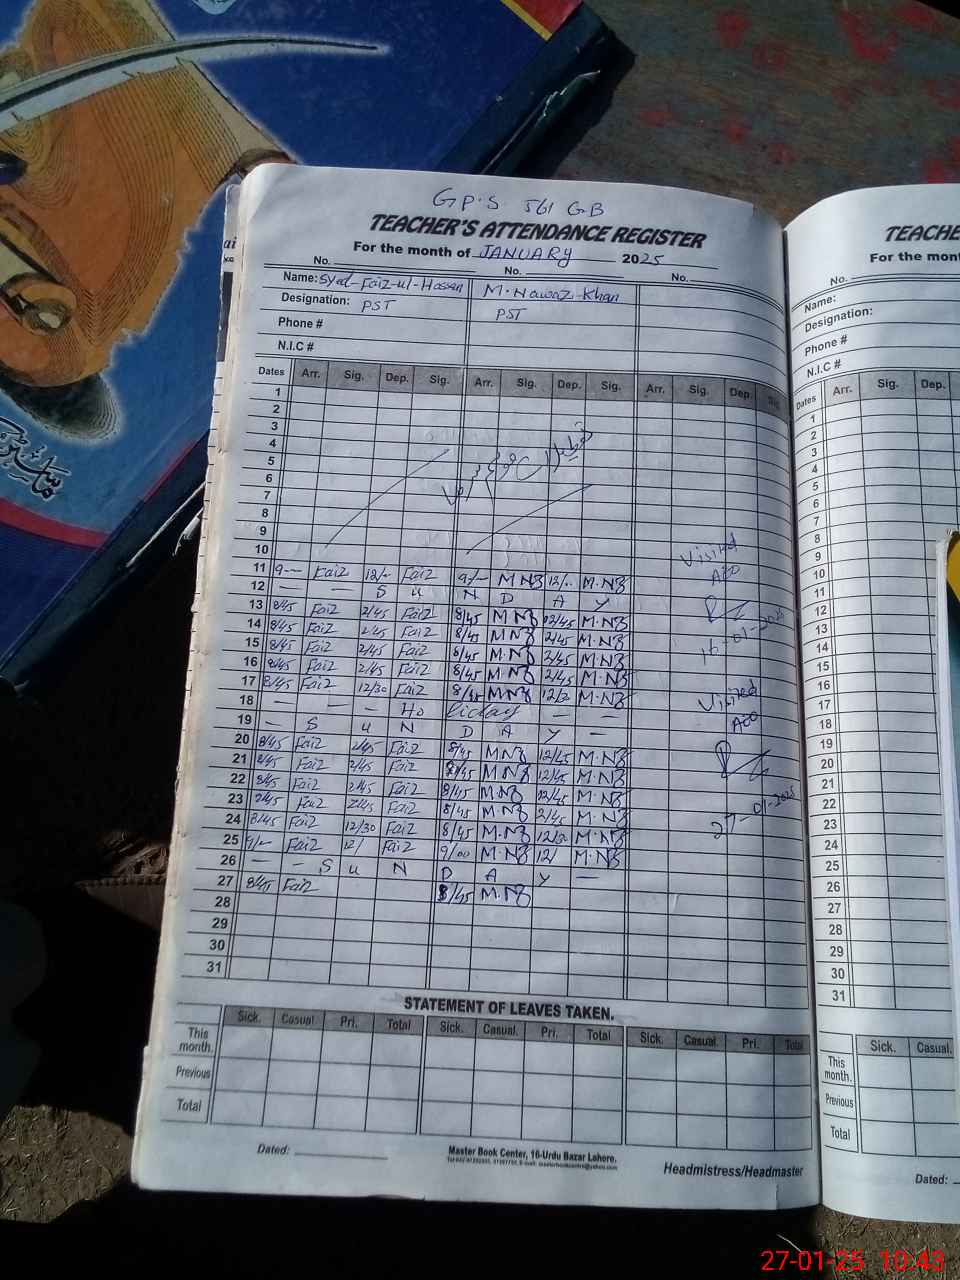 G.P.S. 561 GB
TEACHER'S ATTENDANCE REGISTER
For the month of JANUARY 2025
No. No. No.
Name: Syed Faiz-ul-Hassan M. Nawaz Khan
Designation: PST PST
Phone #
N.I.C #
Dates Arr. Sig. Dep. Sig. Arr. Sig. Dep. Sig. Arr. Sig. Dep. Sig.
1
2
3
4
5
6
7
8
9
10
11 9— Faiz 12/— Faiz 9/— MNZ 12/— M.NZ
12 — — S U N D A Y
13 8/45 Faiz 2/45 Faiz 8/45 MNZ 2/45 M.NZ
14 8/45 Faiz 2/45 Faiz 8/45 MNZ 2/45 M.NZ
15 8/45 Faiz 2/45 Faiz 8/45 MNZ 2/45 M.NZ
16 8/45 Faiz 2/45 Faiz 8/45 MNZ 2/45 M.NZ
17 8/45 Faiz 12/30 Faiz 8/45 MNZ 12/30 M.NZ
18 — — — Holiday — —
19 — S U N D A Y —
20 8/45 Faiz 2/45 Faiz 8/45 MNZ 12/45 M.NZ
21 8/45 Faiz 2/45 Faiz 8/45 MNZ 12/45 M.NZ
22 8/45 Faiz 2/45 Faiz 8/45 MNZ 12/45 M.NZ
23 8/45 Faiz 2/45 Faiz 8/45 MNZ 2/45 M.NZ
24 8/45 Faiz 12/30 Faiz 8/45 M.NZ 12/30 M.NZ
25 9/— Faiz 12/ Faiz 9/00 M.NZ 12/ M.NZ
26 — — S U N D A Y —
27 8/45 Faiz 8/45 M.NZ
28
29
30
31
Visited
AEO
16-01-2025
Visited
AEO
27-01-2025
STATEMENT OF LEAVES TAKEN.
Sick. Casual Pri. Total Sick. Casual. Pri. Total Sick. Casual. Pri. Total
This month.
Previous
Total
Dated:
Master Book Center, 16-Urdu Bazar Lahore.
Headmistress/Headmaster
TEACHE
For the mont
No.
Name:
Designation:
Phone #
N.I.C #
Dates Arr. Sig. Dep.
1
2
3
4
5
6
7
8
9
10
11
12
13
14
15
16
17
18
19
20
21
22
23
24
25
26
27
28
29
30
31
Sick. Casual.
This month.
Previous
Total
Dated:
27-01-25 10:43